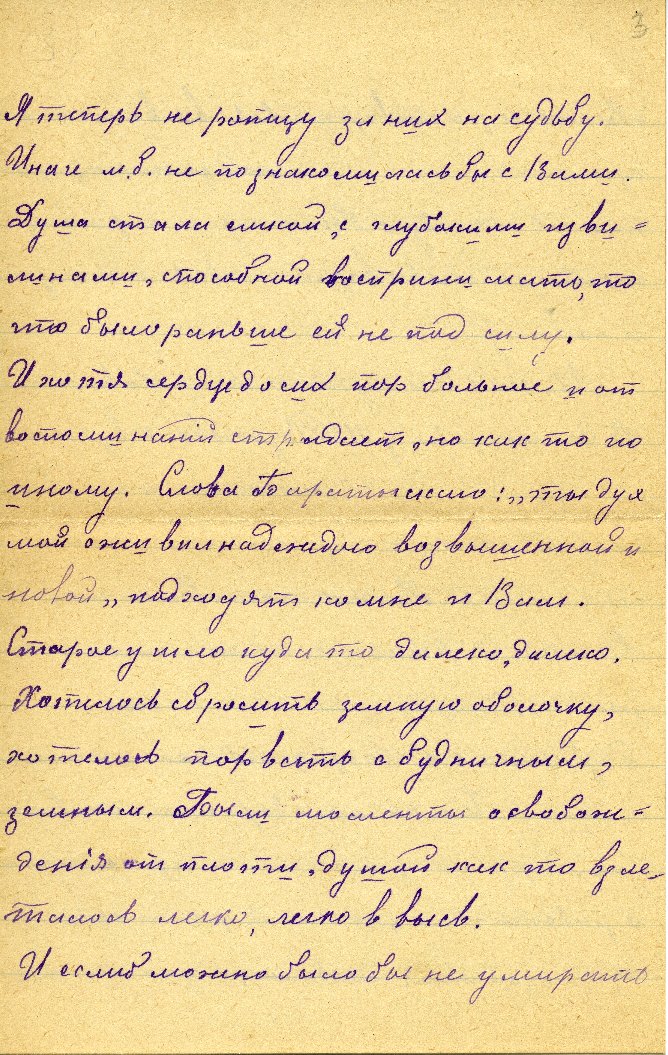 3
Я теперь не ропщу за них на судьбу.
Иначе м.б. не познакомилась бы с Вами.
Душа стала емкой, с глубокими изви=
линами, способной воспринимать, то
что было раньше ей не под силу.
И хотя сердце до сих пор больное и от
воспоминанiй страдает, но как то по
иному. Слова Баратынскаго: „ты дух
мой оживил надеждою возвышенной и
новой„ подходят ко мне и Вам.
Старое ушло куда то далеко, далеко.
Хотелось сбросить земную оболочку,
хотелось порвать с будничным,
земным. Были моменты освобож=
денiя от плоти, душой как то взле-
талось легко, легко в высь.
И еслиб можно было бы не умирать